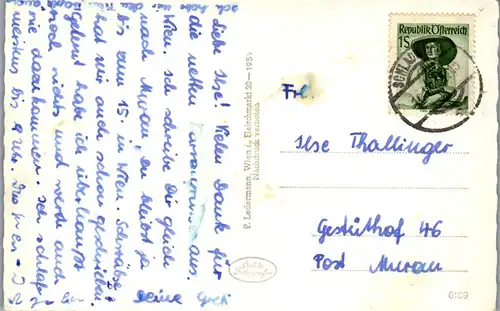 Liebe Ilse! Vielen Dank für
die netten aus
Wien. Ich schreibe Dir gleich
nach Murau, Du bleibst ja
bis zum 15. in Wien. Schwabe
hat mir auch schon geschrieben.
Gelernt habe ich überhaupt
noch nichts und werde auch
nie dazu kommen. Ich schlafe
meistens bis 9 Uhr.
Deine Greti
P. Ledermann, Wien I, Fleischmarkt 20 - 195
Nachdruck verboten
Republik Österreich
1S
Frl.
Ilse Thallinger
Gestüthof 46
Post Murau